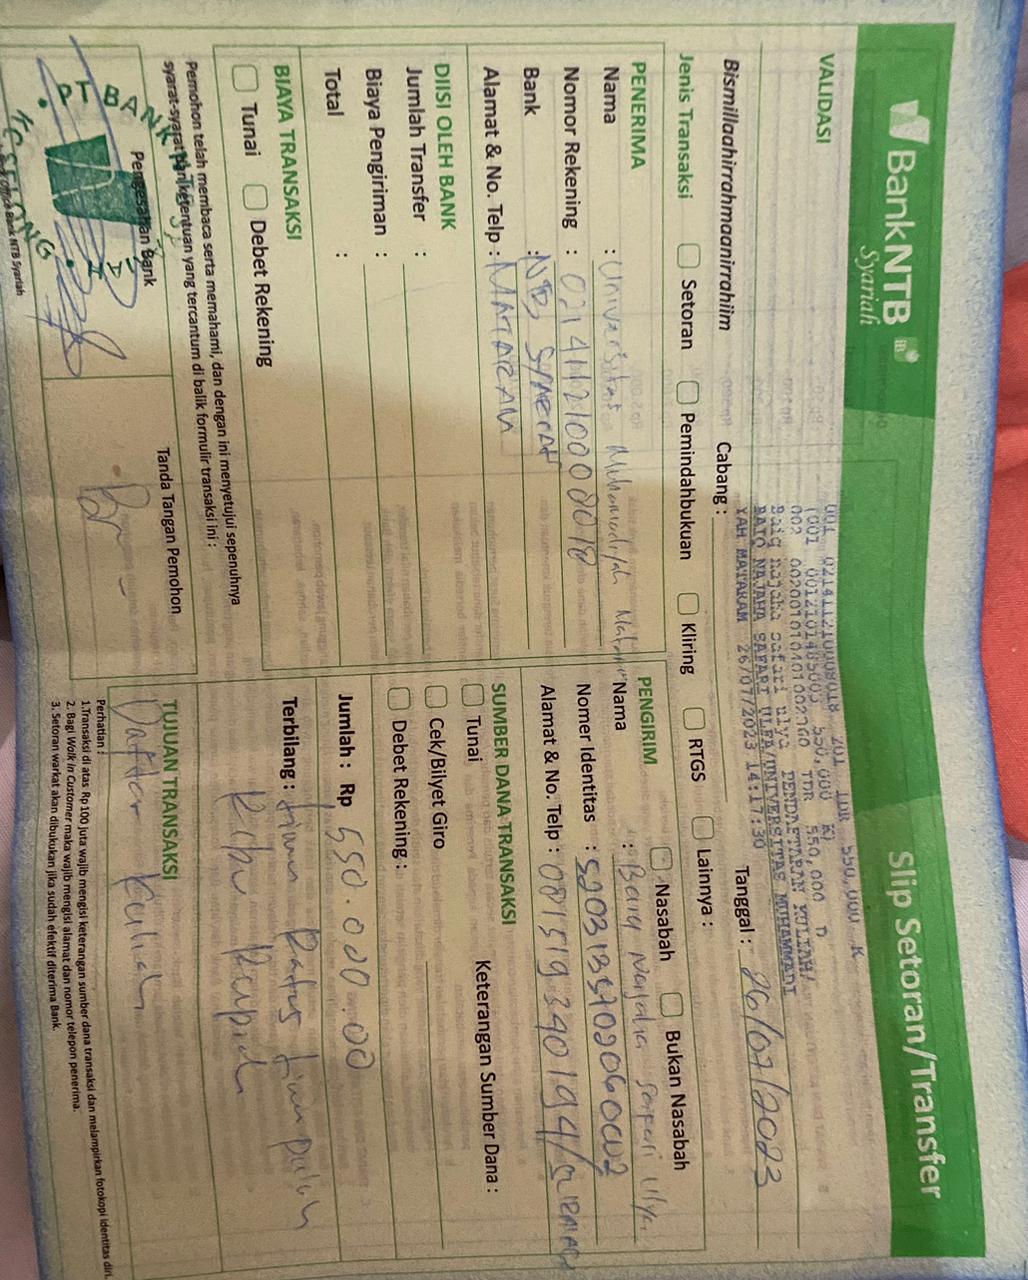 BankNTB
Syariah
Slip Setoran/Transfer
VALIDASI
001 0214112100008018 201 IDR 550,000 K
1001 0012101485003 550,000 K)
002 002001010401002760 IDR 550,000 D
Baiq najaha safari ulya PENDAFTARAN KULIAH/
BAIQ NAJAHA SAFARI ULFA/UNIVERSITAS MUHAMMADI
YAH MATARAM 26/07/2023 14:17:30
Bismillaahirrahmaanirrahiim
Cabang :
Tanggal : 26/07/2023
Jenis Transaksi
Setoran
Pemindahbukuan
Kliring
RTGS
Lainnya :
PENERIMA
Nama : Universitas Muhammadiyah Mataram
Nomor Rekening :
Bank : NTB Syariah
Alamat & No. Telp : MATARAM
PENGIRIM
Nasabah
Bukan Nasabah
Nama : Baiq Najaha Safari Ulya
Nomer Identitas :
Alamat & No. Telp :
DIISI OLEH BANK
Jumlah Transfer :
Biaya Pengiriman :
Total :
SUMBER DANA TRANSAKSI
Keterangan Sumber Dana :
Tunai
Cek/Bilyet Giro
Debet Rekening :
BIAYA TRANSAKSI
Tunai
Debet Rekening
Jumlah : Rp 550.000.00
Terbilang : Lima Ratus Lima puluh
Ribu Rupiah
Pemohon telah membaca serta memahami, dan dengan ini menyetujui sepenuhnya
syarat-syarat dan ketentuan yang tercantum di balik formulir transaksi ini :
Pengesahan Bank
Tanda Tangan Pemohon
PT BANK
TUJUAN TRANSAKSI
Daftar Kuliah
Perhatian :
1.Transaksi di atas Rp 100 juta wajib mengisi keterangan sumber dana transaksi dan melampirkan fotokopi identitas diri.
2. Bagi Walk in Customer maka wajib mengisi alamat dan nomor telepon penerima.
3. Setoran warkat akan dibukukan jika sudah efektif diterima Bank.
Bank NTB Syariah